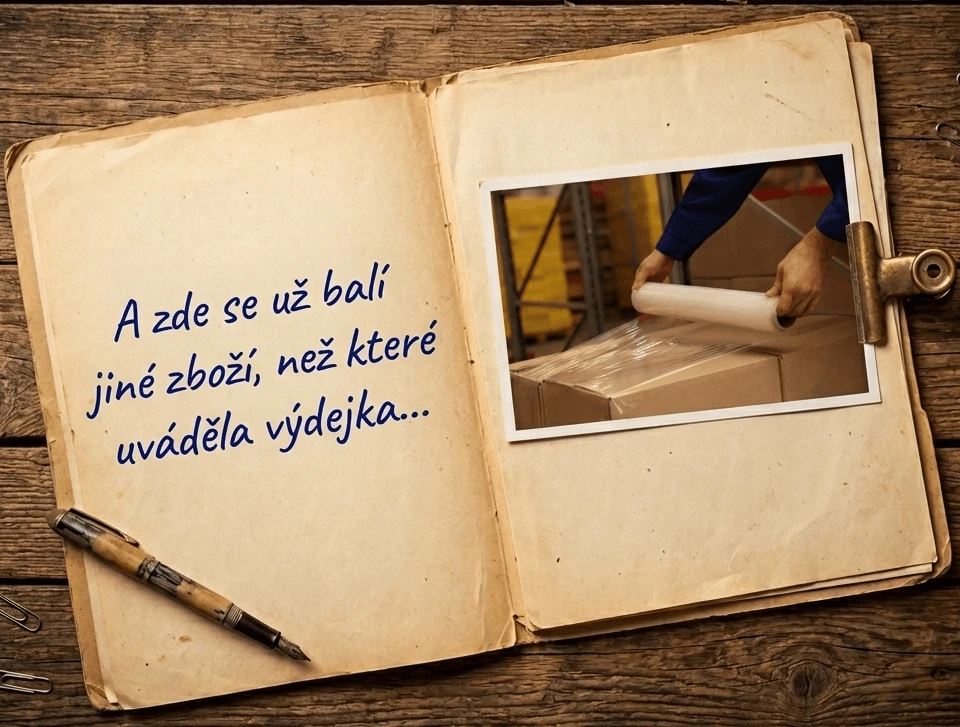 A zde se už balí
jiné zboží, než které
uváděla výdejka...